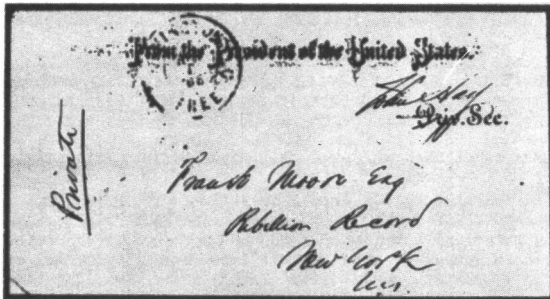 From the President of the United States.
FREE
John Hay
Priv. Sec.
Private
Frank Moore Esq
Rebellion Record
New York